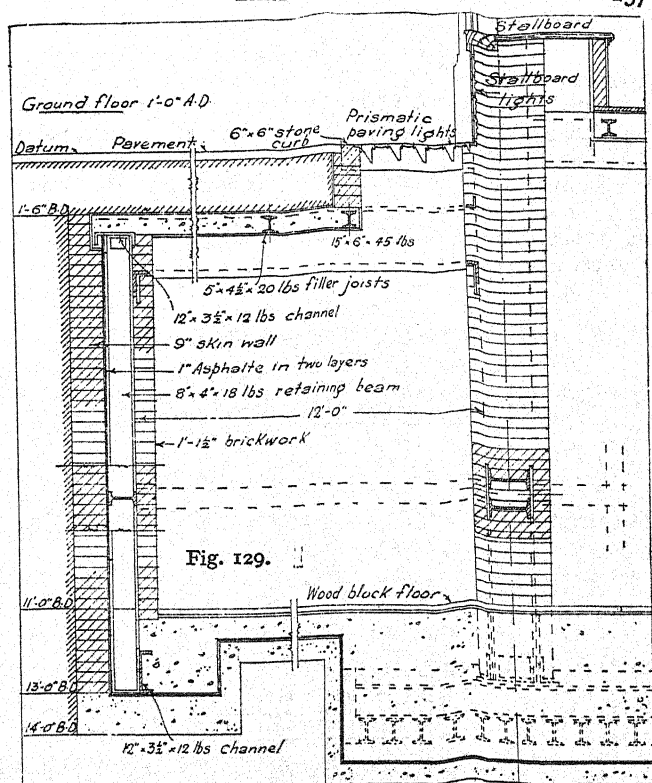 Stallboard
Stallboard
lights
Ground floor 1'-0" A.D.
Prismatic
paving lights
6"×6" stone
curb
Datum
Pavement
1'-6" B.D.
15"×6"×45 lbs
5"×4½"×20 lbs filler joists
12"×3½"×12 lbs channel
9" skin wall
1" Asphalte in two layers
8"×4"×18 lbs retaining beam
12'-0"
1'-1½" brickwork
Fig. 129.
Wood block floor
11'-0" B.D.
13'-0" B.D.
14'-0" B.D.
12"×3½"×12 lbs channel